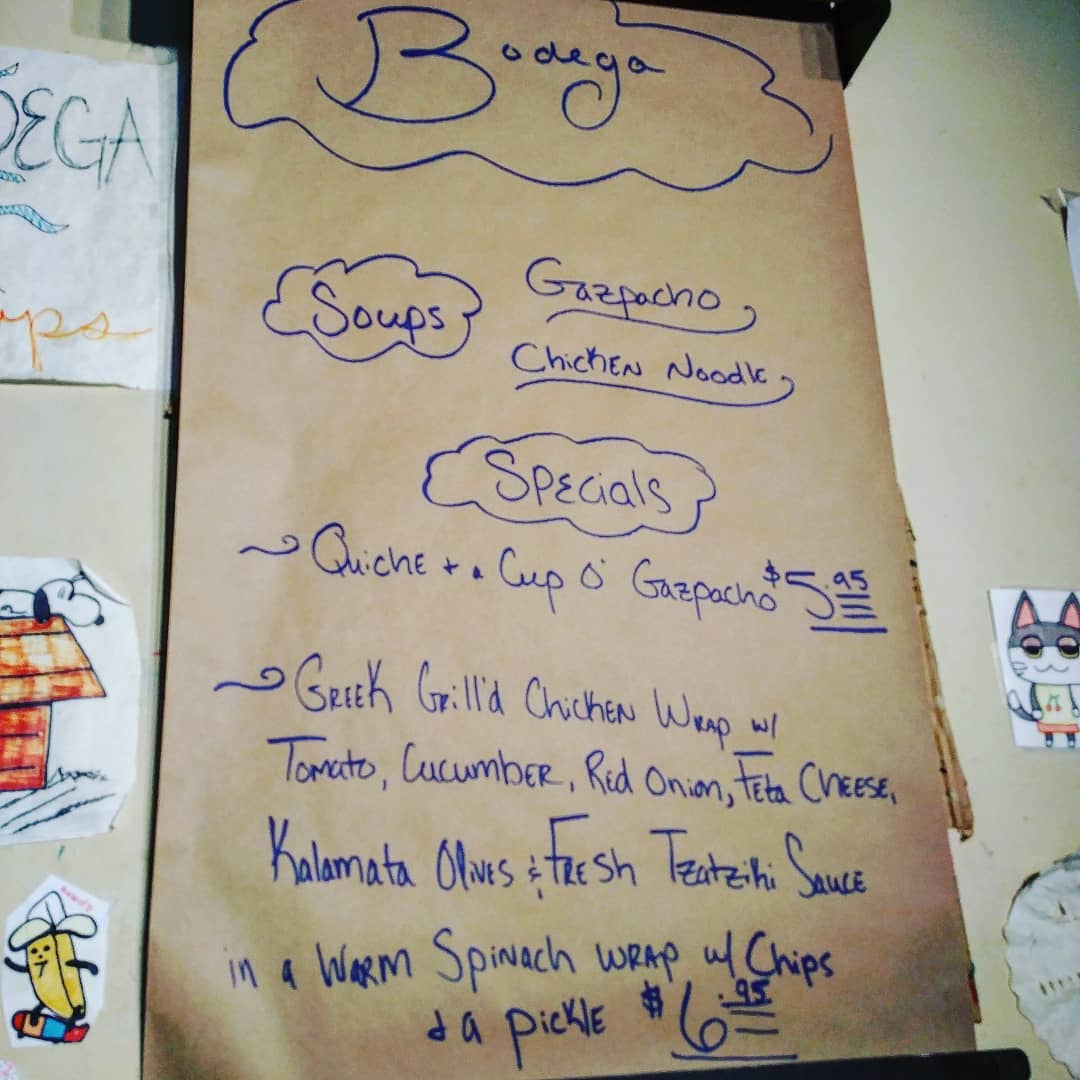 Bodega
Soups
Gazpacho
Chicken Noodle
Specials
Quiche + a Cup O' Gazpacho $5.95
Greek Grill'd Chicken Wrap w/
Tomato, Cucumber, Red Onion, Feta Cheese,
Kalamata Olives & Fresh Tzatziki Sauce
in a Warm Spinach wrap w/ Chips
& a pickle $6.95
DEGA